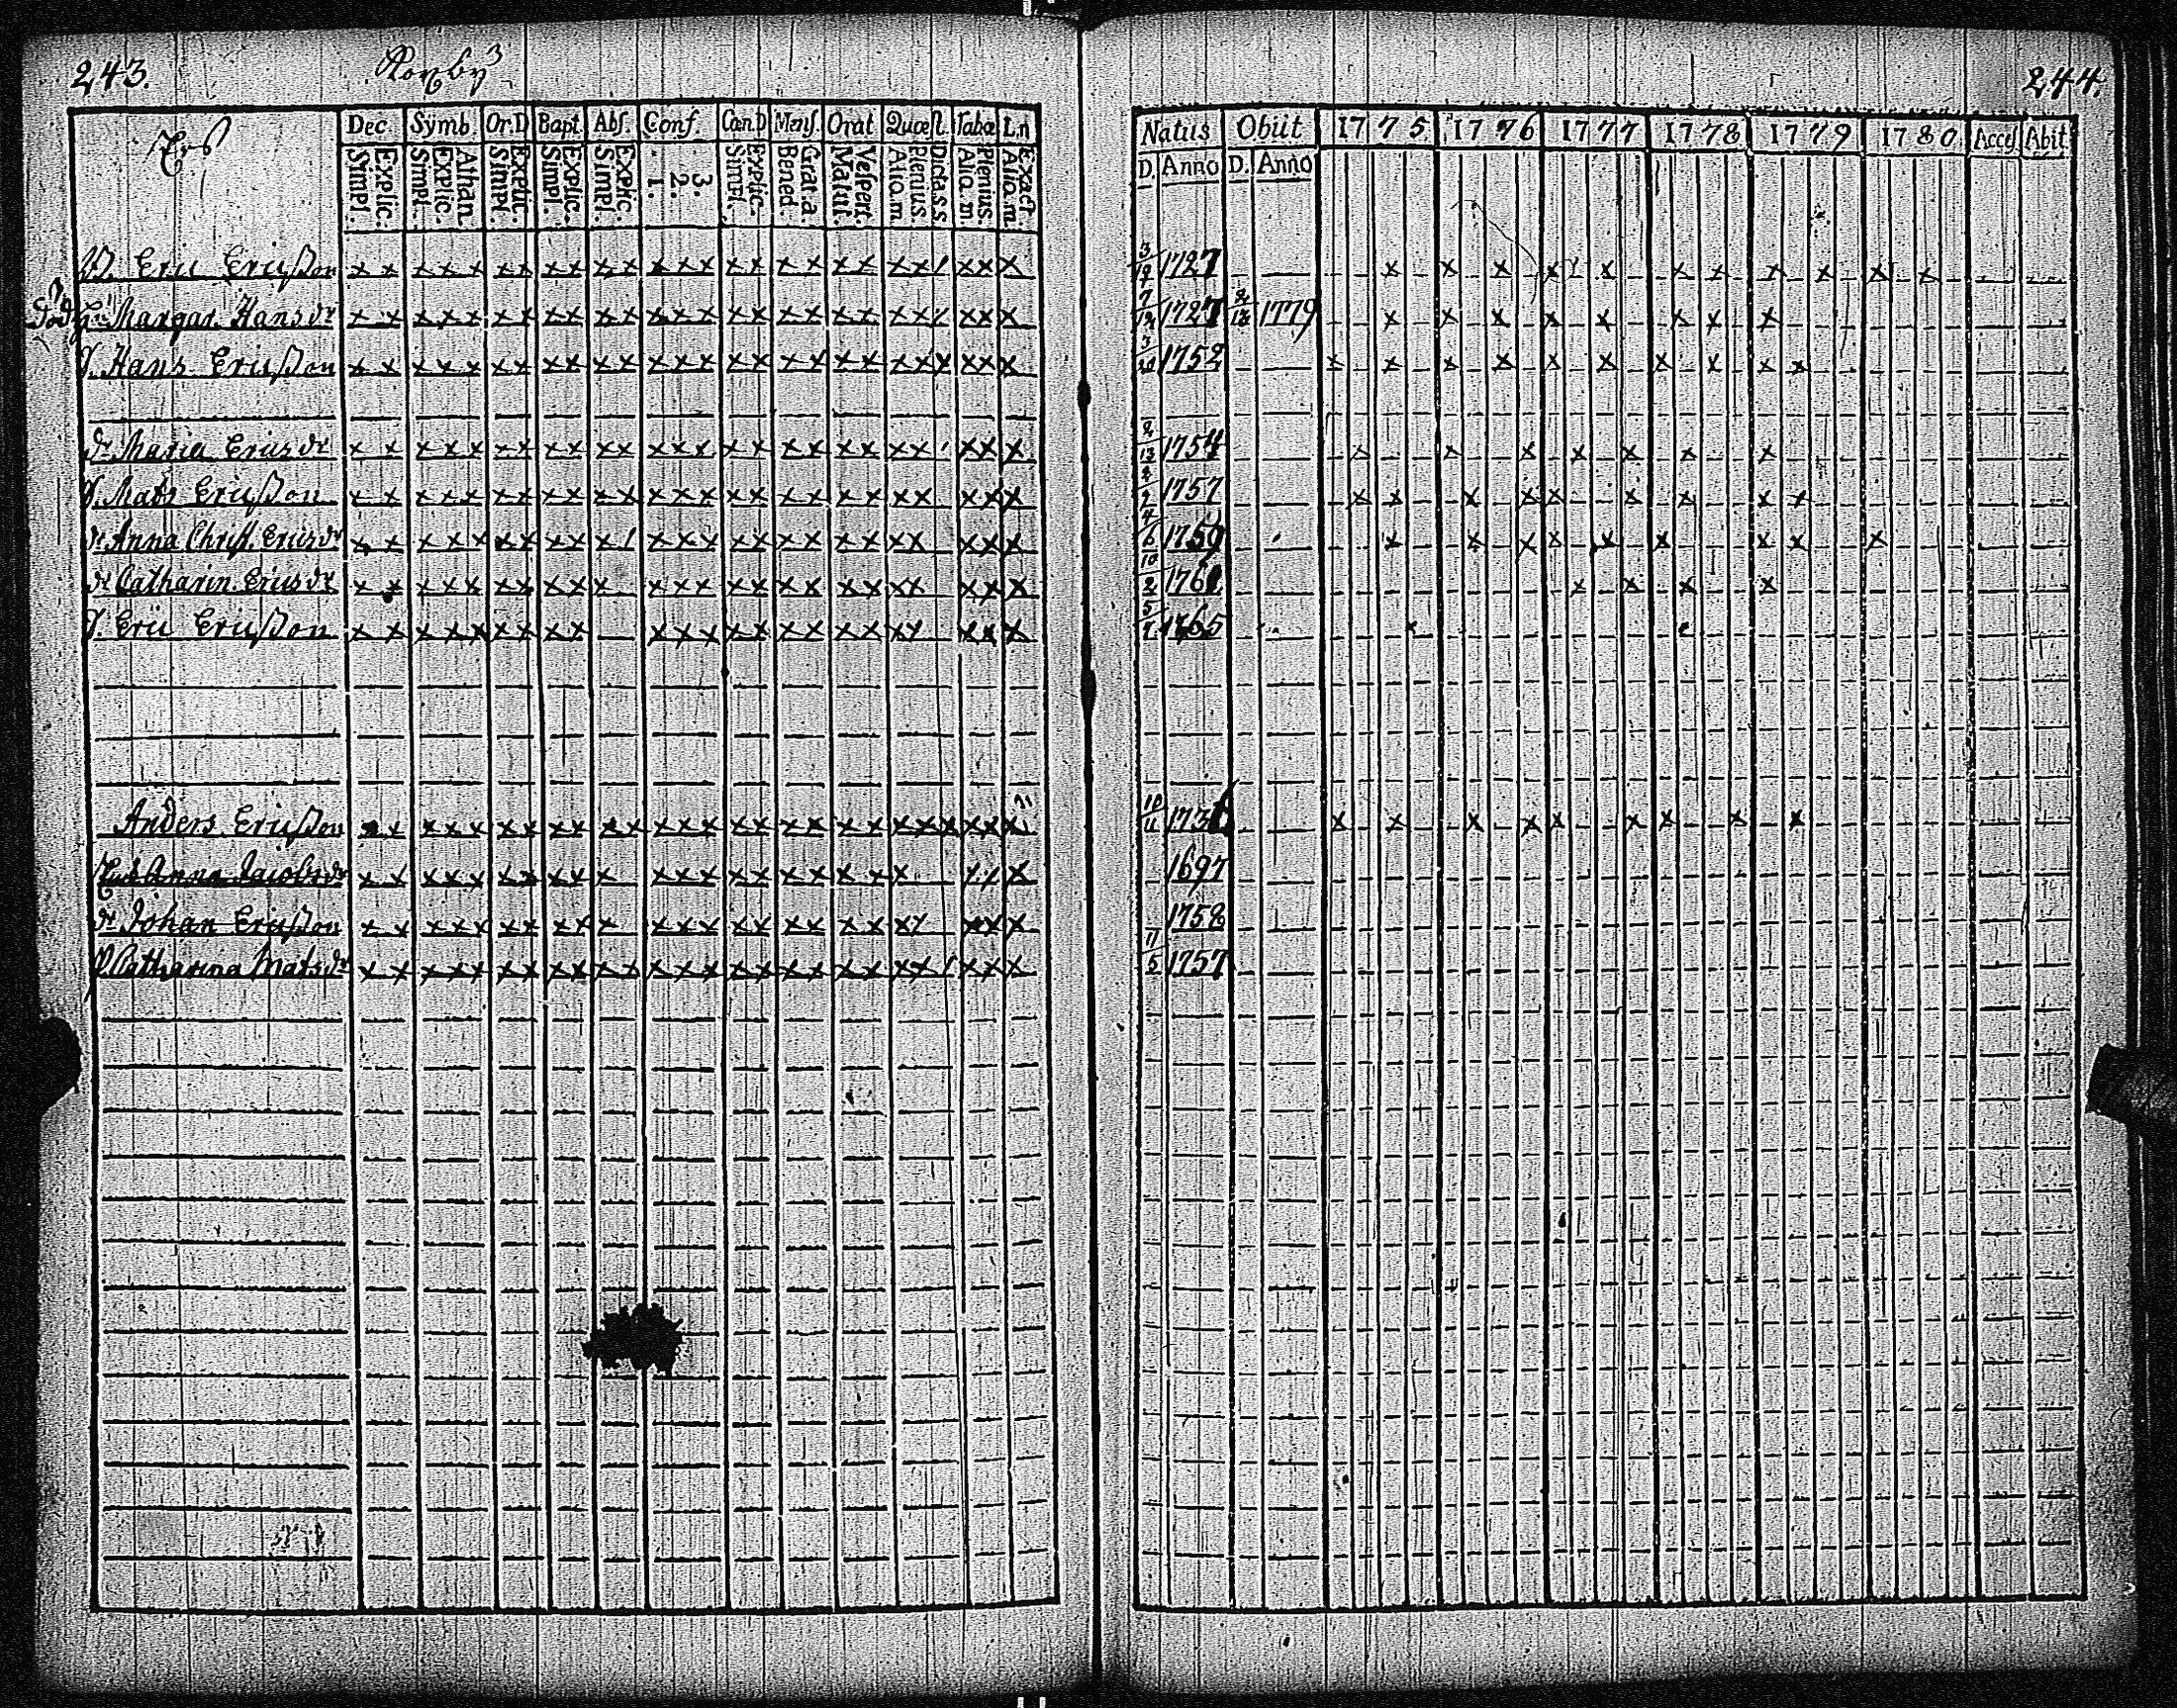 243.
244.
Dec. Symb. Or.D Bapt. Abs. Conf. Cœn.D Mens. Orat Quæst. Tabæ L.n
Simpl. Explic. Simpl. Explic. Athan. Simpl. Explic. Simpl. Explic. Simpl. Explic. 1. 2. 3. Simpl. Explic. Bened. Grat.a Matut. Vespert. Alio.m Plenius Dicta s.s. Alio m. Plenius Alio.m. Exact
Natus Obiit 1775 1776 1777 1778 1779 1780 Acces Abit.
D. Anno D. Anno
Eric Ericsson x x x x x x x x x x x x x x x x x x x x x / x x x 3/19 1727 x x x x x x x x x x x
Margar. Hansdr x x x x x x x x x x x x x x x x x x x x x / x x x 7/12 1727 2/18 1779 x x x x x x x x
S. Hans Ericsson x x x x x x x x x x x x x x x x x x x x x x x x x 1752 x x x x x x x x x x
dr Maria Ericsdr x x x x x x x x x x x x x x x x x x x x x / x x x 2/13 1754 x x x x x x x
S. Mats Ericsson x x x x x x x x x x x x x x x x x x x x x x x x 1757 x x x x x x x x x
dr Anna Christ. Ericsdr x x x x x x x x x x / x x x x x x x x x x x x x 4/6 1759 x x x x x x x x x
dr Catharin. Ericsdr x x x x x x x x x x x x x x x x x x x x x x x 10/2 1761 x x x x
S. Eric Ericsson x x x x x x x x x x x x x x x x x x x x x x 1765
Anders Ericsson x x x x x x x x x x x x x x x x x x x x x x x x x 10/11 1736 x x x x x x x x x
Anna Jacobsdr x x x x x x x x x x x x x x x x x x x x x x 1697
Johan Ericsson x x x x x x x x x x x x x x x x x x x x x x x 1758
P. Catharina Matsdr x x x x x x x x x x x x x x x x x x x x x / x x x 11/5 1757